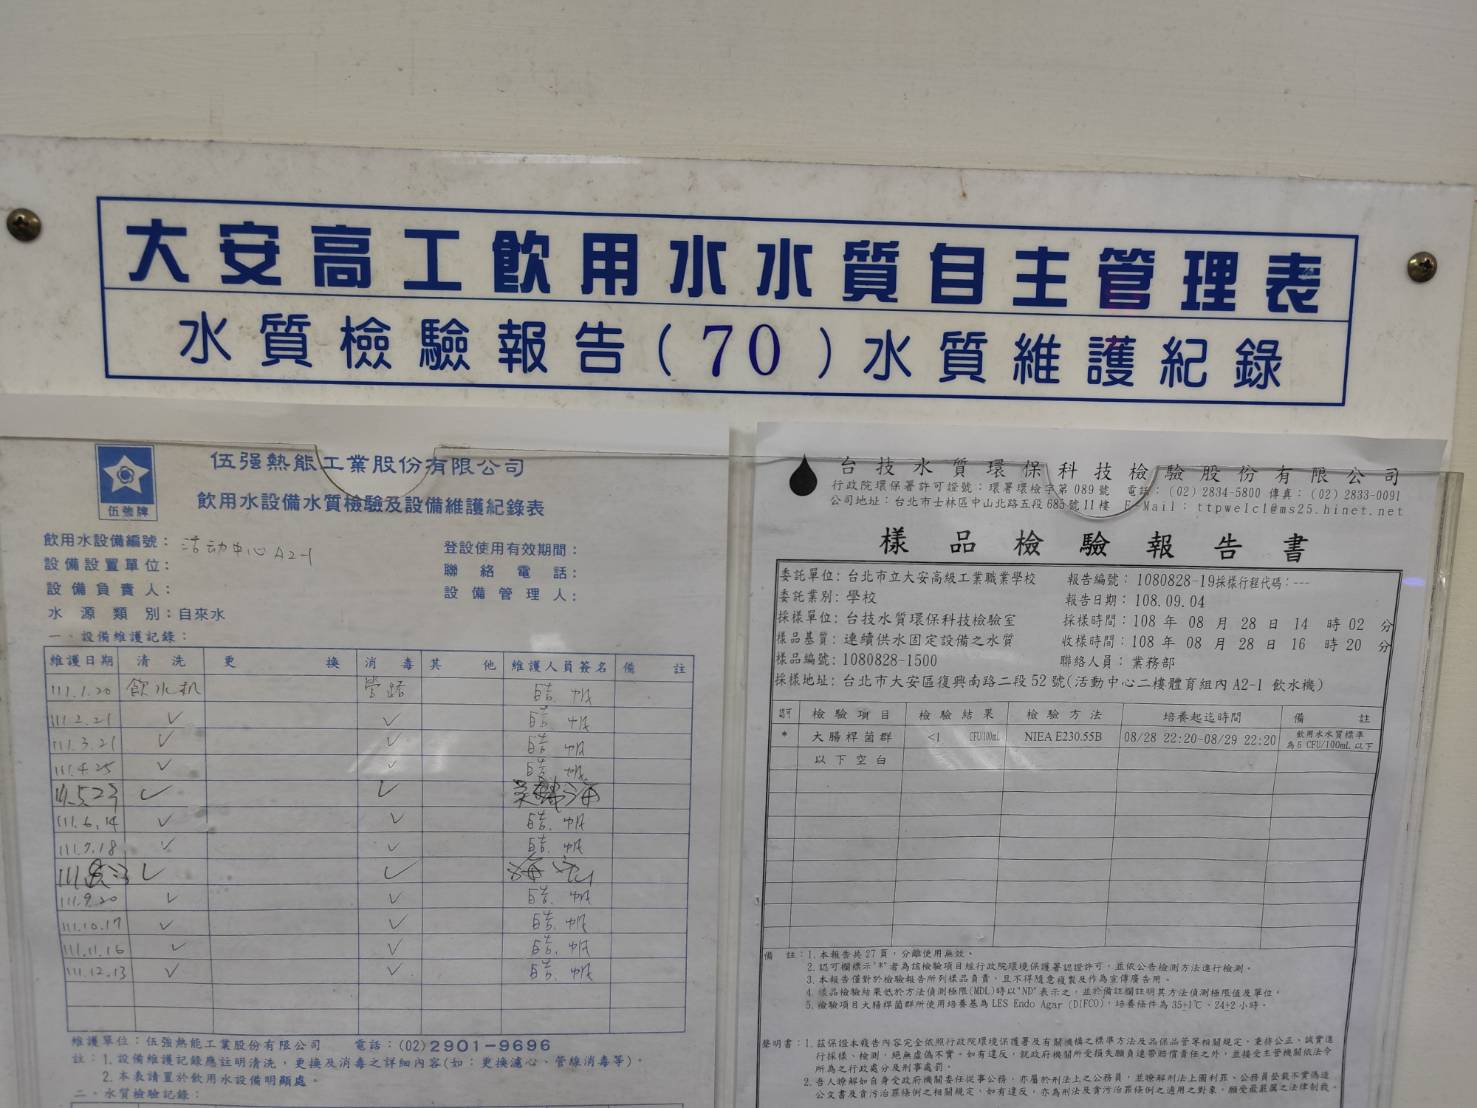 大安高工飲用水水質自主管理表
水質檢驗報告(70)水質維護紀錄
伍強牌
伍强熱能工業股份有限公司
飲用水設備水質檢驗及設備維護紀錄表
飲用水設備編號：活动中心 A2-1
登設使用有效期間：
設備設置單位：
聯絡電話：
設備負責人：
設備管理人：
水源類別：自來水
一、設備維護記錄：
維護日期 清洗 更換 消毒 其他 維護人員簽名 備註
111.1.20 飲水机 管路
111.2.21 ✓ ✓
111.3.21 ✓ ✓
111.4.25 ✓ ✓
111.5.23 ✓ ✓
111.6.14 ✓ ✓
111.7.18 ✓ ✓
✓ ✓
111.9.20 ✓ ✓
111.10.17 ✓ ✓
111.11.16 ✓ ✓
111.12.13 ✓ ✓
維護單位：伍強熱能工業股份有限公司 電話：(02)2901-9696
註：1.設備維護記錄應註明清洗、更換及消毒之詳細內容(如：更換濾心、管線消毒等)。
2.本表請置於飲用水設備明顯處。
二、水質檢驗記錄：
台技水質環保科技檢驗股份有限公司
行政院環保署許可證號：環署環檢字第 089 號 電話：(02) 2834-5800 傳真：(02) 2833-0091
公司地址：台北市士林區中山北路五段 685 號 11 樓 E-Mail：ttpwelcl@ms25.hinet.net
樣品檢驗報告書
委託單位：台北市立大安高級工業職業學校 報告編號：1080828-19採樣行程代碼：---
委託業別：學校 報告日期：108.09.04
採樣單位：台技水質環保科技檢驗室 採樣時間：108 年 08 月 28 日 14 時 02 分
樣品基質：連續供水固定設備之水質 收樣時間：108 年 08 月 28 日 16 時 20 分
樣品編號：1080828-1500 聯絡人員：業務部
採樣地址：台北市大安區復興南路二段 52 號(活動中心二樓體育組內 A2-1 飲水機)
認可 檢驗項目 檢驗結果 檢驗方法 培養起迄時間 備註
* 大腸桿菌群 <1 CFU/100mL NIEA E230.55B 08/28 22:20-08/29 22:20 飲用水水質標準為 6 CFU/100mL 以下
以下空白
備註：1.本報告共 27 頁，分離使用無效。
2.認可欄標示"*"者為該檢驗項目經行政院環境保護署認證許可，並依公告檢測方法進行檢測。
3.本報告僅對於檢驗報告所列樣品負責，且不得隨意複製及作為宣傳廣告用。
4.樣品檢驗結果低於方法偵測極限(MDL)時以"ND"表示之，並於備註欄註明其方法偵測極限值及單位。
5.檢驗項目大腸桿菌群所使用培養基為 LES Endo Agar (DIFCO)，培養條件為 35±1℃、24±2 小時。
聲明書：1.茲保證本報告內容完全依照行政院環境保護署及有關機構之標準方法及品保品管等相關規定，秉持公正、誠實進
行採樣、檢測，絕無虛偽不實，如有違反，就政府機關所受損失願負連帶賠償責任之外，並接受主管機關依法令
所為之行政處分及刑事處罰。
2.吾人瞭解如自身受政府機關委任從事公務，亦屬於刑法上之公務員，並瞭解刑法上圖利罪、公務員登載不實偽造
公文書及貪污治罪條例之相關規定，如有違反，亦為刑法及貪污治罪條例之適用之對象，願受最嚴厲之法律制裁。